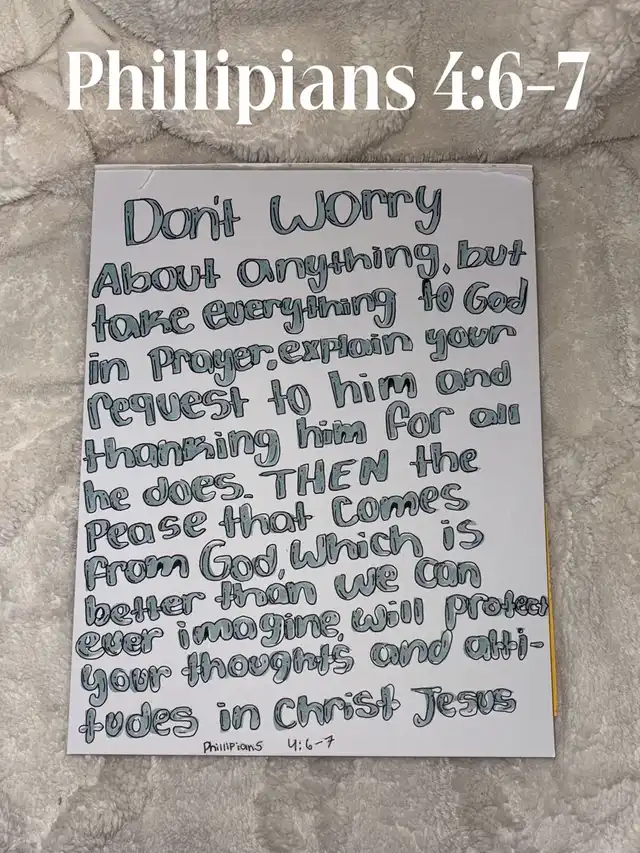 Phillipians 4:6-7
Don't Worry
About anything, but
take everything to God
in Prayer, explain your
request to him and
thanking him for all
he does. THEN the
Pease that comes
from God, which is
better than we can
ever imagine, will protect
your thoughts and atti-
tudes in Christ Jesus
Phillipians 4:6-7